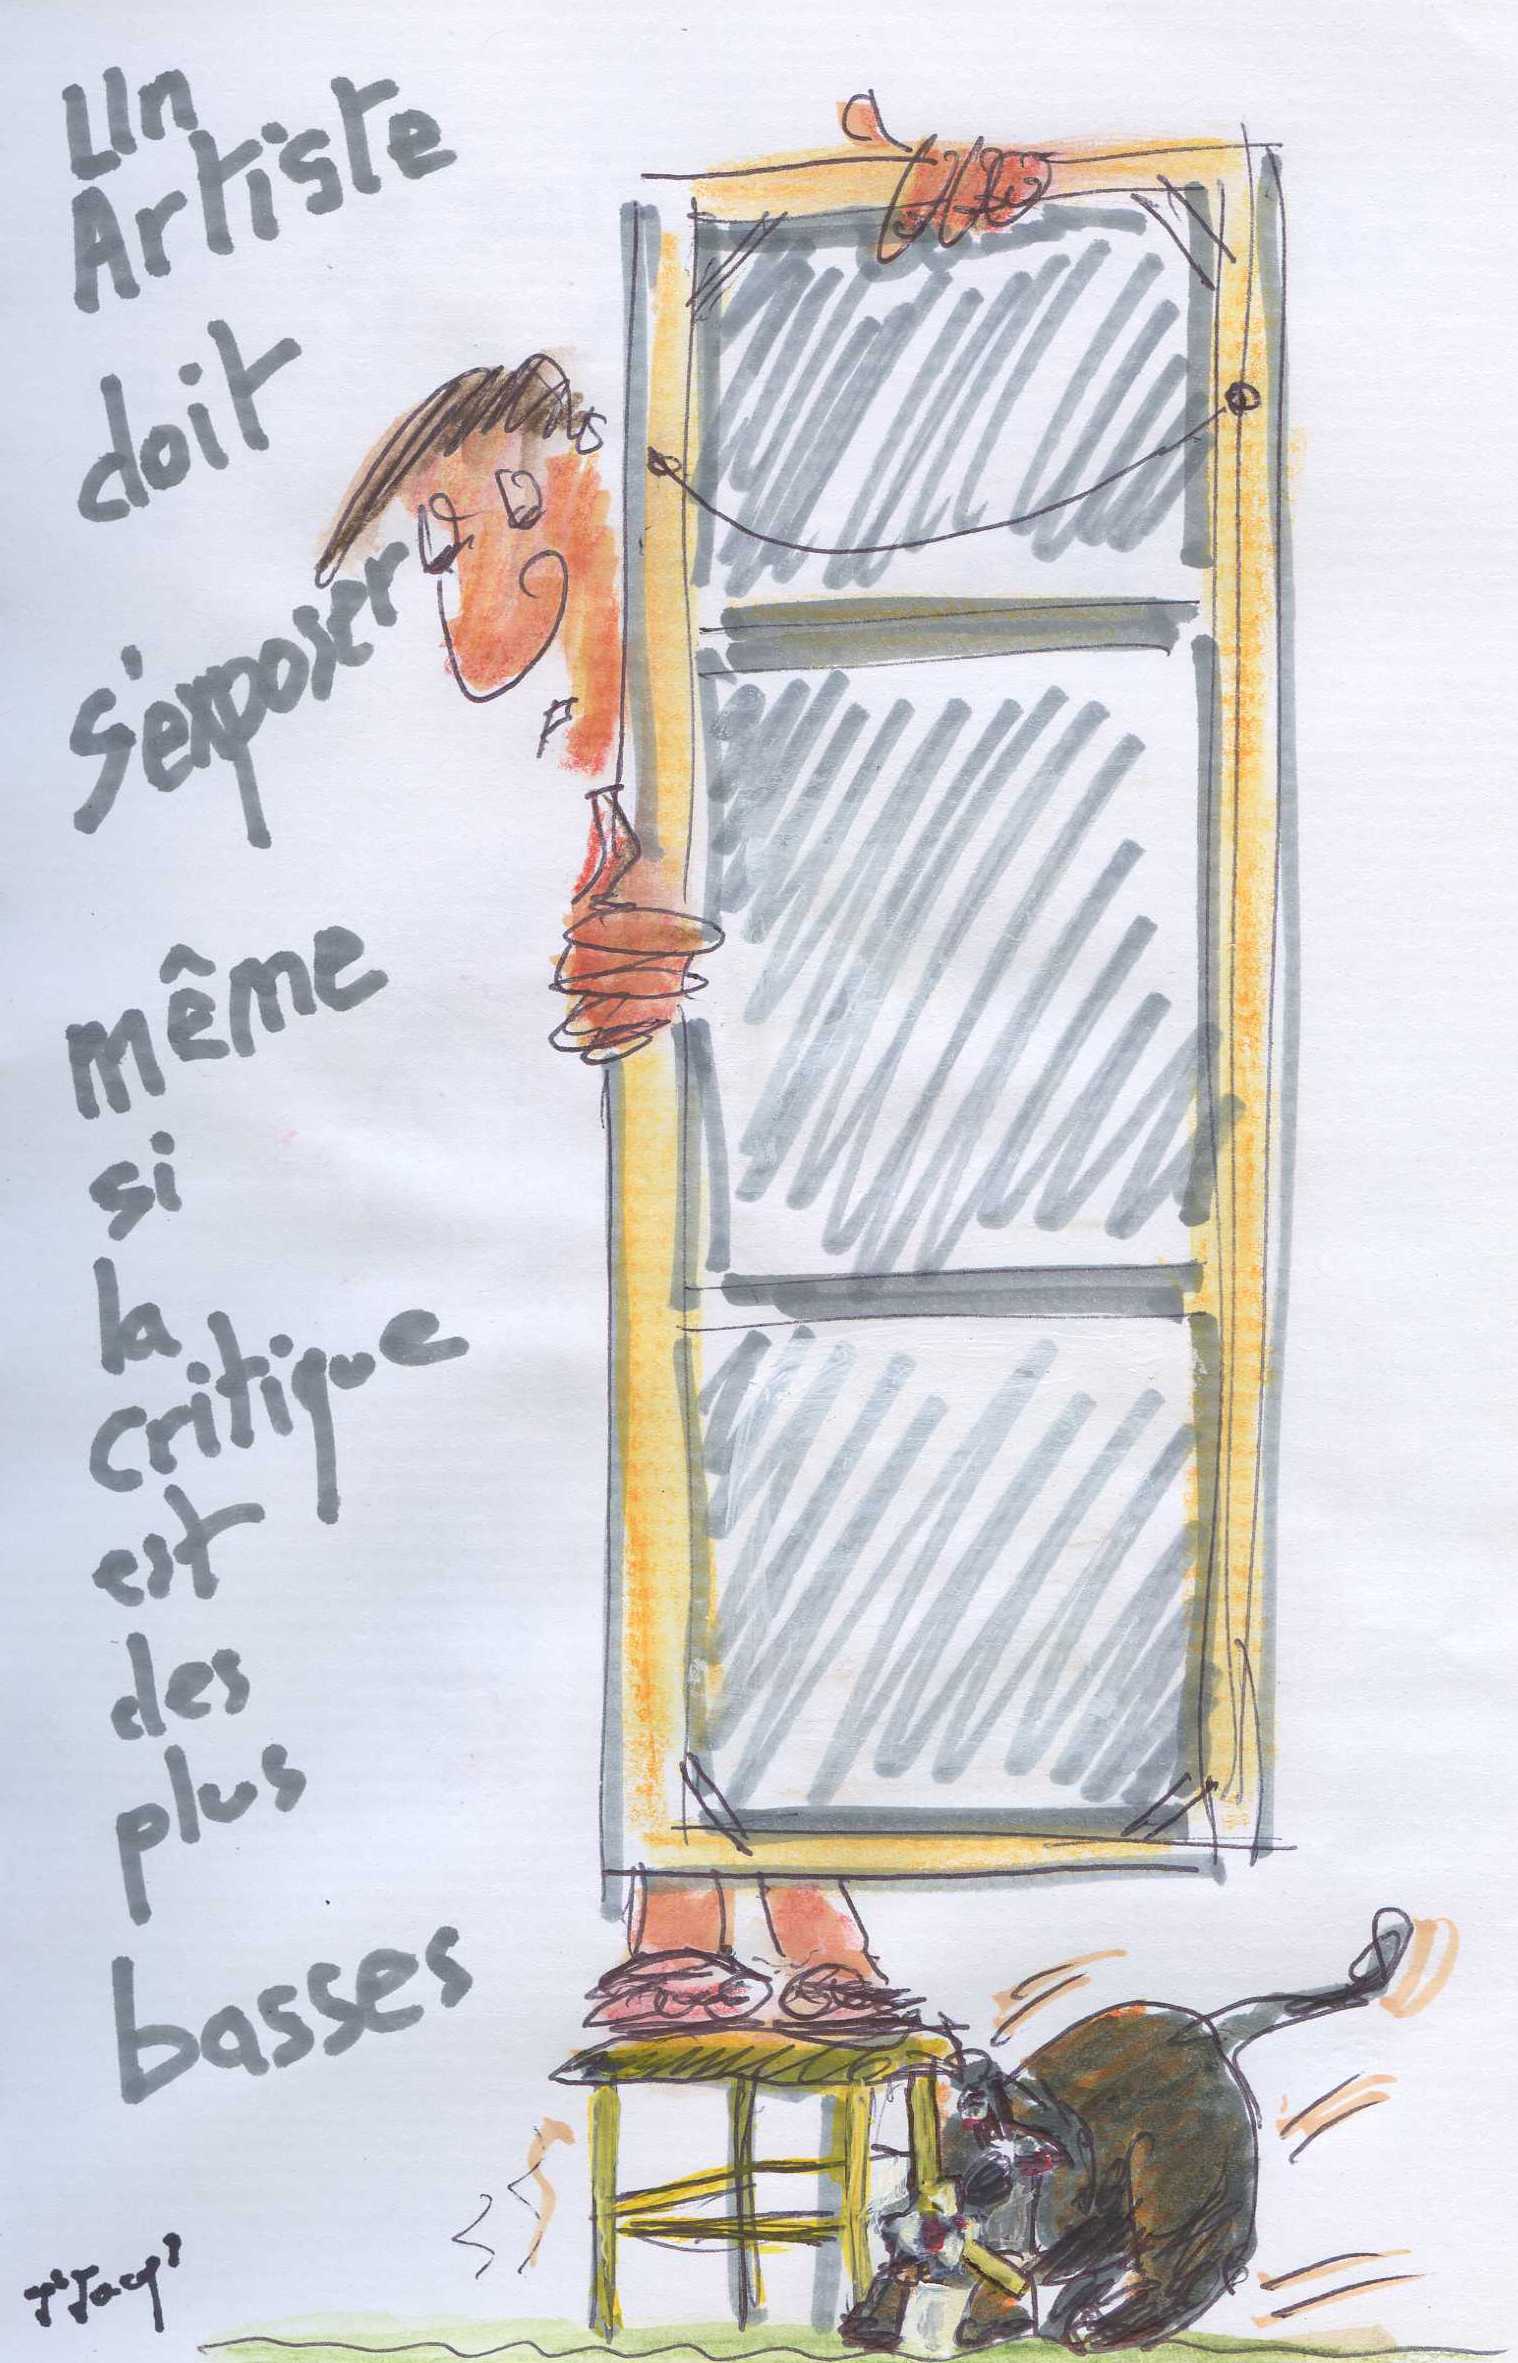 Un
Artiste
doit
s'exposer
même
si
la
critique
est
des
plus
basses